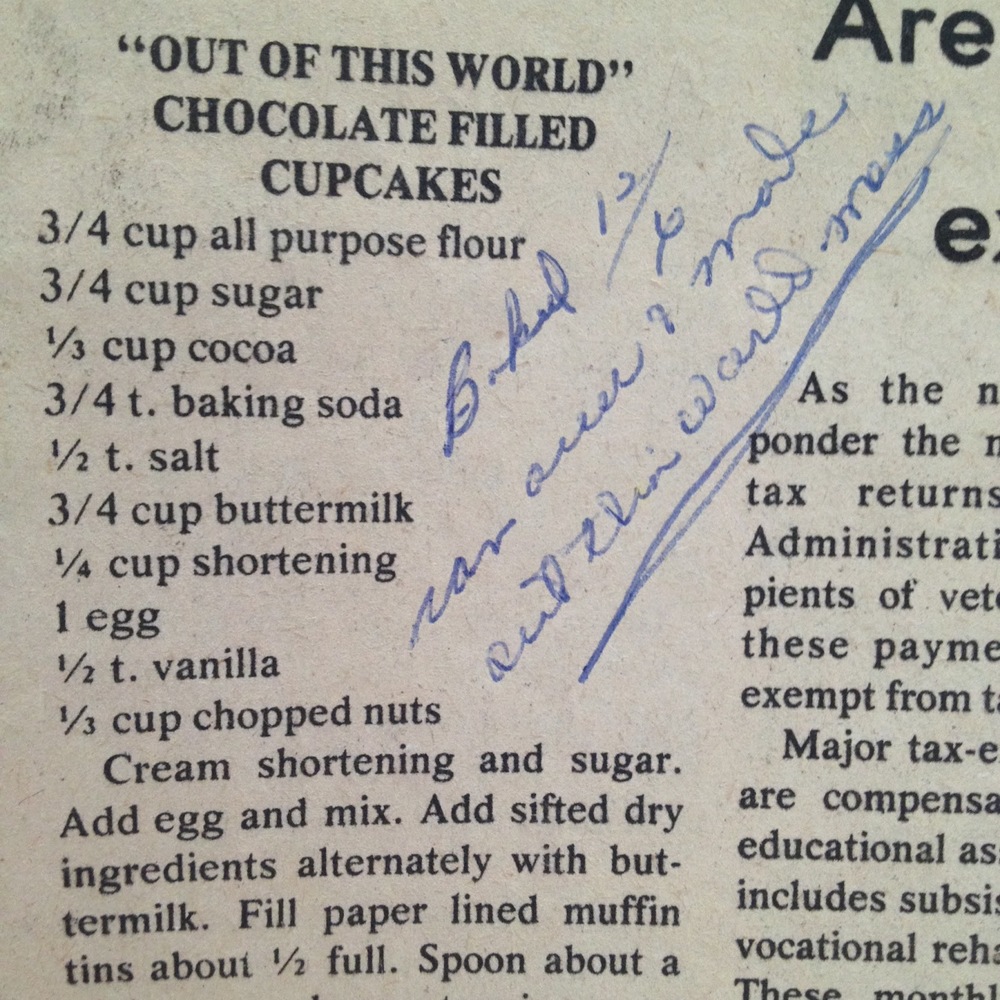 “OUT OF THIS WORLD”
CHOCOLATE FILLED
CUPCAKES
3/4 cup all purpose flour
3/4 cup sugar
⅓ cup cocoa
3/4 t. baking soda
½ t. salt
3/4 cup buttermilk
¼ cup shortening
1 egg
½ t. vanilla
⅓ cup chopped nuts
Cream shortening and sugar.
Add egg and mix. Add sifted dry
ingredients alternately with but-
termilk. Fill paper lined muffin
tins about ½ full. Spoon about a
Baked 12
ran over & made
out this world mess
Are
ex
As the n
ponder the n
tax returns
Administrati
pients of vete
these payme
exempt from ta
Major tax-e
are compensa
educational as
includes subsis
vocational reha
These monthl